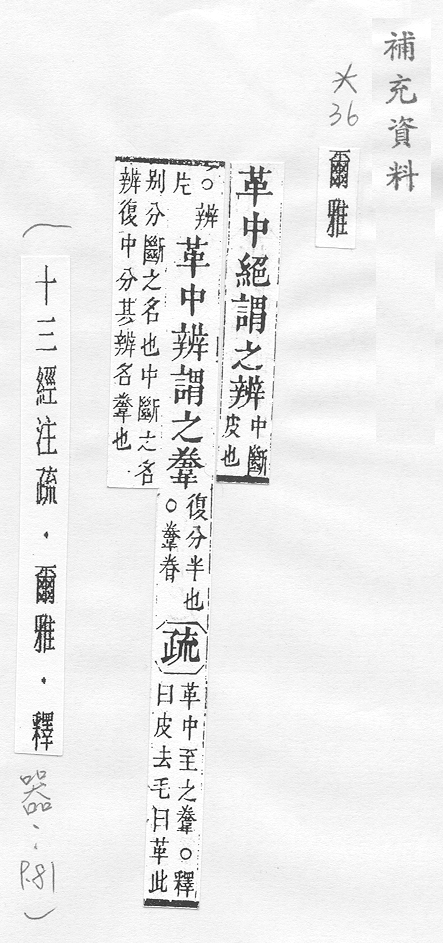 補充資料
※36
爾雅
革中絕謂之辨中斷
皮也
○辨
片
革中辨謂之韏復分半也
○韏眷
疏革中至之韏○釋
曰皮去毛曰革此
别分斷之名也中斷之名
辨復中分其辨名韏也
(十三經注疏．爾雅．釋器：P.81)